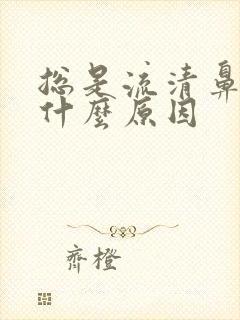 总是流清鼻
什麽原因
齊橙